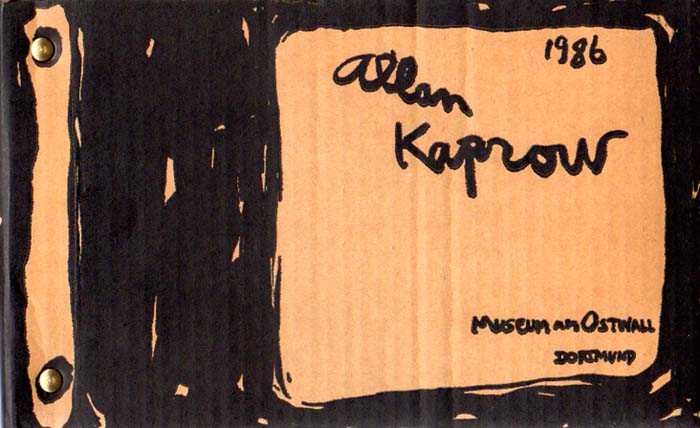 1986
Allan
Kaprow
MUSEUM am OSTWALL
DORTMUND